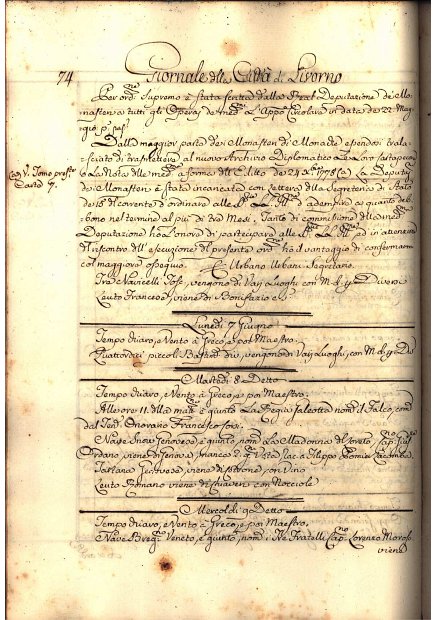 74
Giornale della Città di Livorno
Per ordine Supremo è stata scritta dalla Real Deputazione dei Mo-
nasteri a tutti gli Operaj de med.mi L'App.o Circolare in data de 22 Mag-
gio p. pas.
Dalla maggior parte dei Monasteri di Monache essendosi trala-
sciato di trasmettere al nuovo Archivio Diplomatico le Loro Cartapecore
o La Nota delle med.e a forma dell Editto de 24 1778 (a) La Deputaz.e
(a) V. Tomo prest.e
Carta 7.
dei Monasteri è Stata incaricata con Lettera della Segreteria di Stato
de 18 del corrente d'ordinare alle adempire quanto deb-
bono nel termine al più di tre Mesi, Tanto di commissione della med.a
Deputazione ho L'onore di partecipare alle ed in attenzione
del riscontro dell' esecuzione del presente ord.e ho il vantaggio di confermarmi
col maggiore ossequio. Urbano Urbani Segretario.
Tre Navicelli vengono di Varj Luoghi con M. d. e Diversi
Leuto Francese, viene di Bonifazio e
Lunedì 7 Giugno
Tempo chiaro, e Vento à Greco, e poi Maestro.
Quattordici piccoli Bastim.ti div. vengono di Varj Luoghi, con M. d. e Di
Martedì 8 Detto
Tempo chiaro, e Vento à Greco, e poi Maestro.
All'ore 11. della matt.a è giunto La Regia Galeotta nom.a il Falco, com.a
dal Ten.e Onorario Francesco
Nave Genovese è giunto, nom. La Madonna di Loreto, Cap.
viene di Genova, manca 2. g. Va a Filippo
Tartana Genovese, viene di con Vino
Leuto Romano viene di Chiaveri con Nocciole
Mercoldì 9 Detto
Tempo chiaro, e Vento à Greco, e poi Maestro,
Nave Breg.no Veneto, è giunto, nom. i Tre Fratelli Cap.no Lorenzo
viene